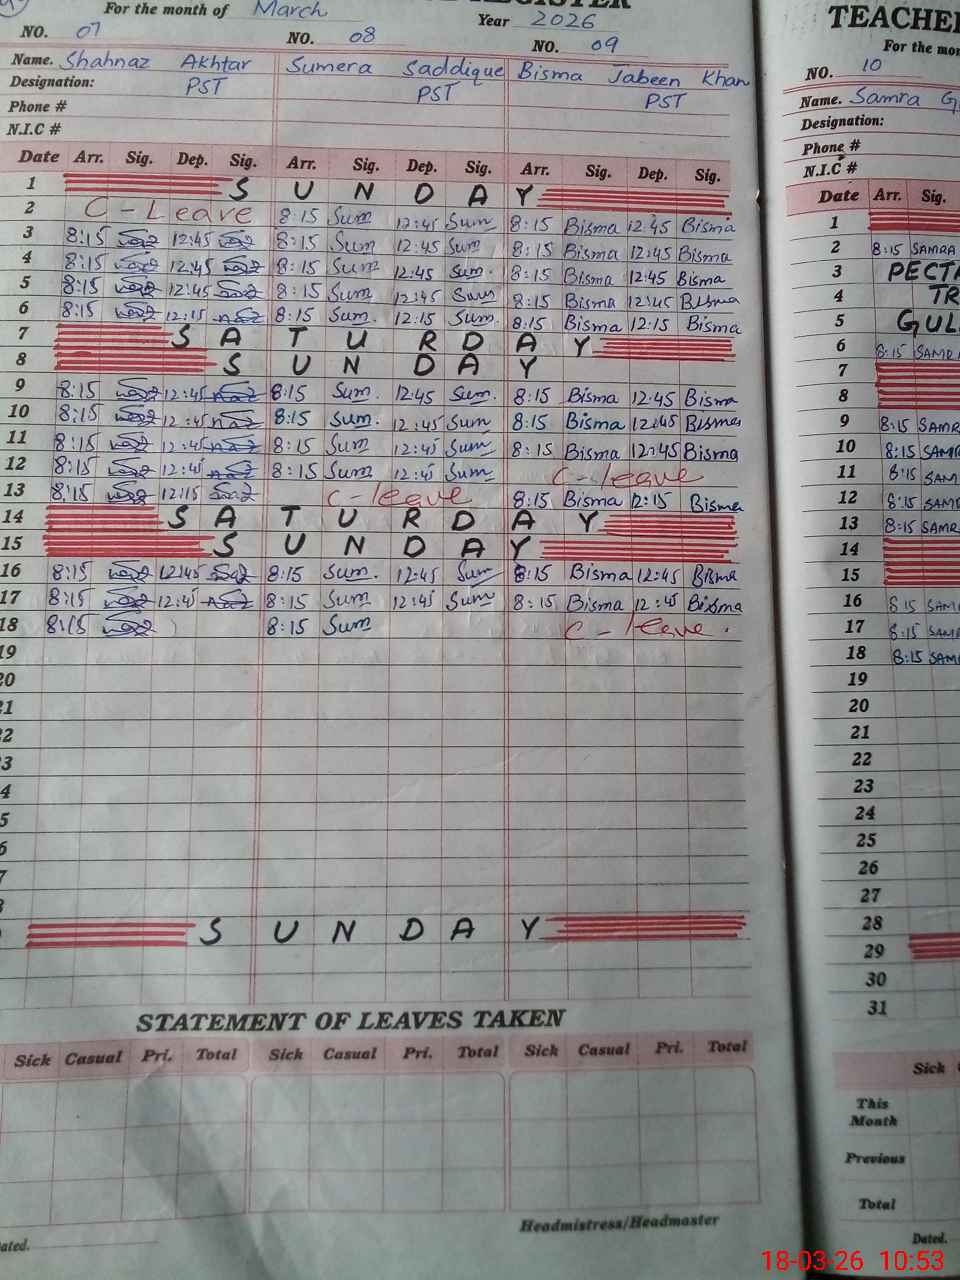 REGISTER
For the month of March Year 2026
NO. 07 NO. 08 NO. 09
Name. Shahnaz Akhtar Sumera Saddique Bisma Jabeen Khan
Designation: PST PST PST
Phone #
N.I.C #
Date Arr. Sig. Dep. Sig. Arr. Sig. Dep. Sig. Arr. Sig. Dep. Sig.
1 S U N D A Y
2 C-Leave 8:15 Sum 12:45 Sum 8:15 Bisma 12:45 Bisma
3 8:15 12:45 8:15 Sum 12:45 Sum 8:15 Bisma 12:45 Bisma
4 8:15 12:45 8:15 Sum 12:45 Sum. 8:15 Bisma 12:45 Bisma
5 8:15 12:45 8:15 Sum 12:45 Sum 8:15 Bisma 12:45 Bisma
6 8:15 12:15 8:15 Sum. 12:15 Sum. 8:15 Bisma 12:15 Bisma
7 S A T U R D A Y
8 S U N D A Y
9 8:15 12:45 8:15 Sum. 12:45 Sum. 8:15 Bisma 12:45 Bisma
10 8:15 12:45 8:15 Sum. 12:45 Sum 8:15 Bisma 12:45 Bisma
11 8:15 12:45 8:15 Sum 12:45 Sum 8:15 Bisma 12:45 Bisma
12 8:15 12:45 8:15 Sum 12:45 Sum C-leave
13 8:15 12:15 C-leave 8:15 Bisma 12:15 Bisma
14 S A T U R D A Y
15 S U N D A Y
16 8:15 12:45 8:15 Sum. 12:45 Sum 8:15 Bisma 12:45 Bisma
17 8:15 12:45 8:15 Sum 12:45 Sum 8:15 Bisma 12:45 Bisma
18 8:15 8:15 Sum C-leave.
19
20
21
22
3
4
5
6
7
S U N D A Y
STATEMENT OF LEAVES TAKEN
Sick Casual Pri. Total Sick Casual Pri. Total Sick Casual Pri. Total
Headmistress/Headmaster
Dated.
TEACHE
For the mon
NO. 10
Name. Samra G
Designation:
Phone #
N.I.C #
Date Arr. Sig.
1
2 8:15 SAMRA
3 PECTA
4 TR
5 GUL
6 8:15 SAMR
7
8
9 8:15 SAMR
10 8:15 SAMR
11 8:15 SAM
12 8:15 SAM
13 8:15 SAMR
14
15
16 8:15 SAM
17 8:15 SAM
18 8:15 SAM
19
20
21
22
23
24
25
26
27
28
29
30
31
Sick
This
Month
Previous
Total
Dated.
18-03-26 10:53